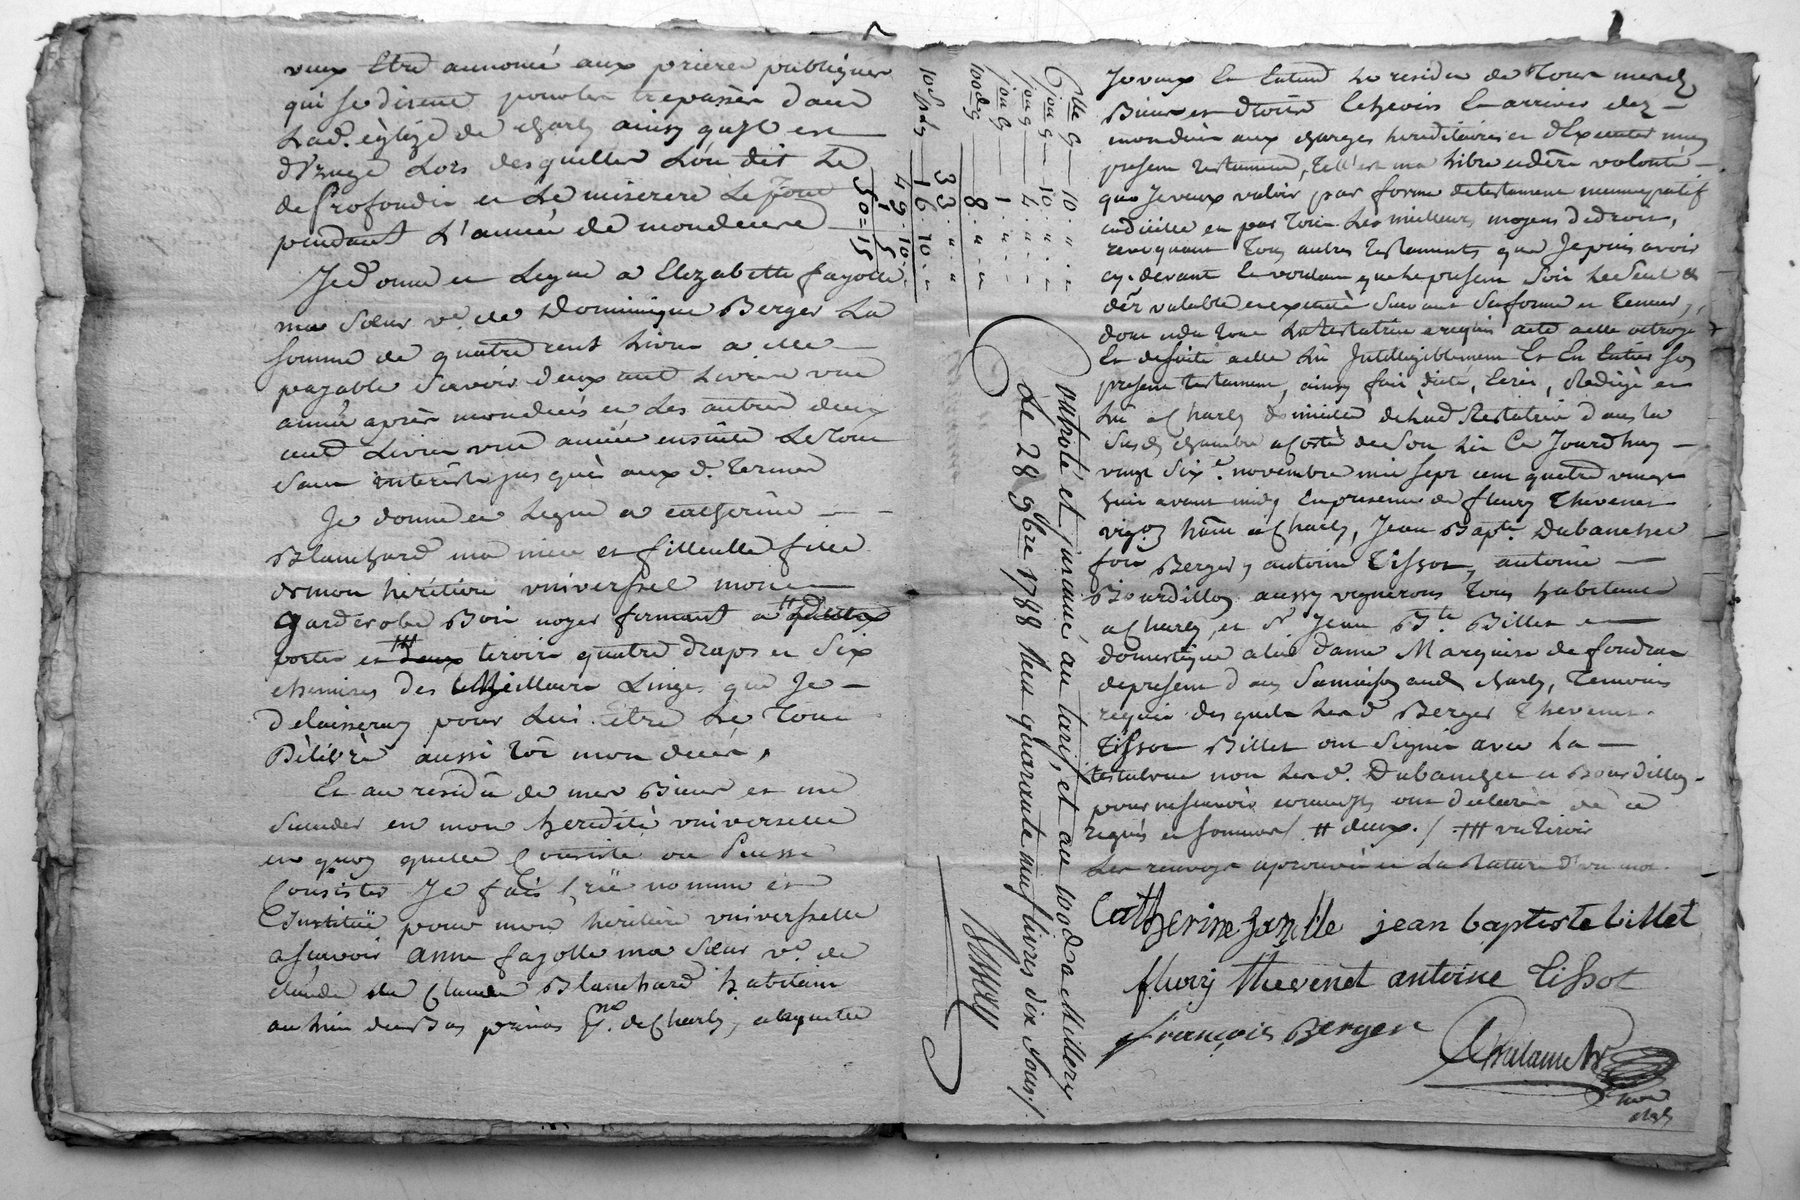 veux Etre annoncé aux prieres publiques
qui se disent pour les trepassés dans
Lad. église de charly ainsy quil est
d'Usage Lors desquelles L'on dit Le
de Profondis et Le miserere Le Tout
pendant L'année de mon deces
Je donne et Legue a Elizabette fayolle
ma Sœur ve. de Dominique Berger La
somme de quatre cent Livres a elle
payable Savoir deux cent Livres une
année après mon décés et Les autres deux
cent Livres une année ensuite Le Tout
Sans interêts jusqués aux d. Termes
Je donne et Legue a catherine
Blanchard ma niece et filleulle fille
de mon héritiere universelle mon
garderobe Bois noyer fermant a # quatre
portes et # deux tiroirs quatre draps et Six
chemises des Meilleures Linges que Je
délaisseray pour Lui être Le Tout
Délivré aussi tôt mon decés,
Et au residu de mes Biens et me
succeder en mon heredité universelle
en quoy quelle Consiste ou Puisse
Consister Je fais, crée nomme et
Institue pour mon héritiere universelle
a scavoir anne fayolle ma Sœur ve. de
claude Blanchard habitant
au Lieu du Bas privas psse. de Charly, a laquelle
10 s. p. L.
33 . " . "
16 . 10 . "
49 . 10 .
1 . 5
50 = 15
Clle G — 10 . " . "
6 jou G — 10 . " . "
jou G — 4 . " . "
jou G — 1 . " . "
100 d G — 8 . " . "
Controlé et insinué au tarif, et au 100 d. a Millery
Le 28 9bre 1788 Reçu quarante neuf livres dix sous /
Je veux Et Entend Le residu de Tous mesd.
Biens et droits Echevoir Et arriver dez
mon deces aux charges hereditaires et d'Executer mon
present testament, Tell'est ma Libre et dére volonté
que Je veux valoir par forme de testament nuncupatif
codicille et par Tous Les meilleurs moyens de droit,
revoquant Tous autres Testaments que Je puis avoir
cy-devant Et voulant que Le present Soit Le Seul &
dér valable et executé Suivant Sa forme et Teneur,
dont et du Tout La testatrice a requis acte a elle octroyé
Et de suite a elle Lû Intelligiblement Et En Entier Son
present testament, ainsy fait dicté, Ecrit, Redigé et
Lû a Charly domicile de Lad. Testatrice dans la
Susd. chambre a Costé de Son Lit Ce Jourdhuy
vingt Six.e novembre mil Sept cent quatre vingt
huit avant midy En presence de fleury Thevenet
vig.on hãnt a Charly, Jean Bap.te Dubanchet
fois Berger, antoine Tissot, antoine
Bourdillon aussy vignerons Tous habitants
a Charly, et Sr Jean B.te Billet
domestique a lad. dame Marquise de foudras
de present dans Sa maison aud. charly, Temoins
requis desquels Lesd. Berger Thevenet
Tissot Billet ont Signé avec La
testatrice non Lesd. Dubanchet et Bourdillon
pour ne scavoir comme ils ont declaré de ce
requis et sommés / # deux. / # un tiroir
Les renvoys aprouvés et La Rature d'un mot.
Catherine fayolle jean baptiste billet
fleury thevenet antoine Tissot
françois Berger